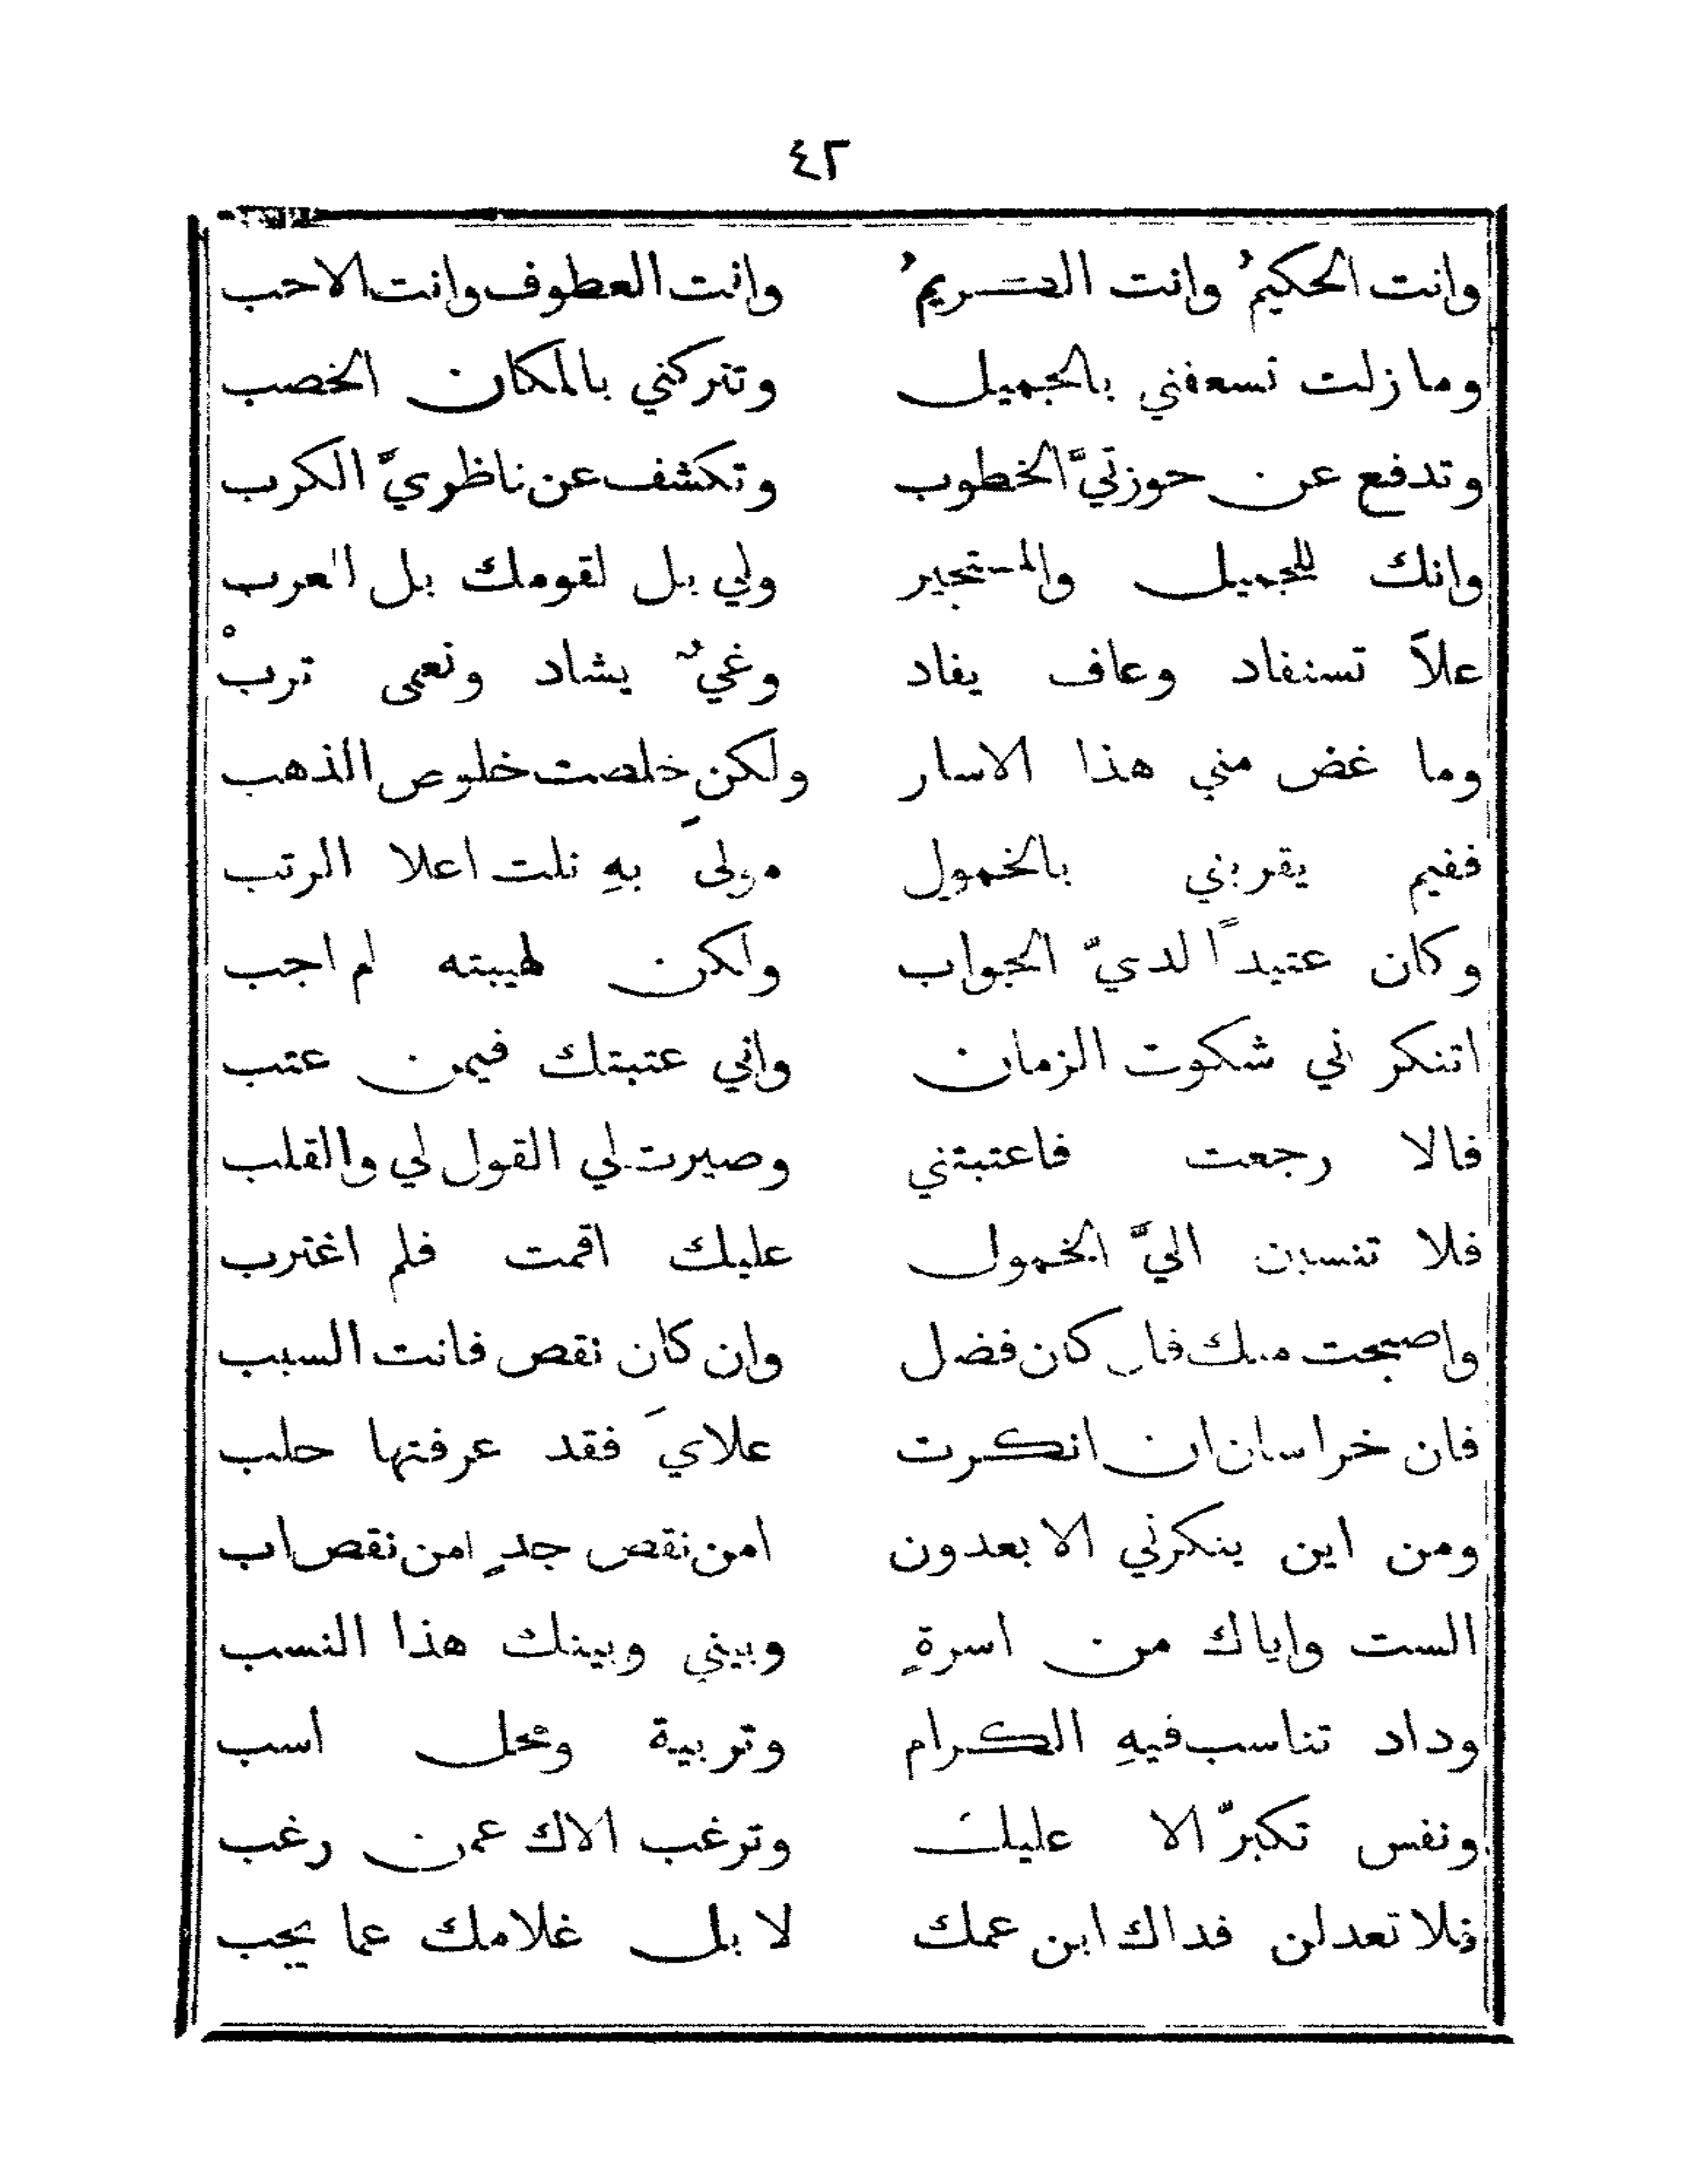 ٤٢
وانت الحكيمُ وانت الكريمُ وانت العطوف وانت الاحب
وما زلت تسعفني بالجميل وتتركني بالمكان الخصب
وتدفع عن حوزتيَّ الخطوب وتكشف عن ناظريَّ الكرب
وانك للجميل والمستجير ولي بل لقومك بل العرب
علاً تستفاد وعاف يفاد وغيٌ يشاد ونعمى تربْ
وما غض مني هذا الاسار ولكن خلصت خلوص الذهب
ففيم يقربني بالخمول مولىً بهِ نلت اعلا الرتب
وكان عتيداً لديَّ الجواب ولكن لهيبته لم اجب
اتنكر اني شكوت الزمان واني عتبتك فيمن عتب
فالا رجعت فاعتبتني وصيرت لي القول لي والقلب
فلا تنسبن اليَّ الخمول عليك اقمت فلم اغترب
واصبحت منك فان كان فضل وان كان نقص فانت السبب
فان خراسان ان انكرت علايَ فقد عرفتها حلب
ومن اين ينكرني الابعدون امن نقص جدٍ امن نقص اب
الست واياك من اسرةٍ وبيني وبينك هذا النسب
وداد تناسب فيهِ الكرام وتربية ومحل اسب
ونفس تكبرَّ الا عليك وترغب الاك عمن رغب
فلا تعدلن فداك ابن عمك لا بل غلامك عما يجب